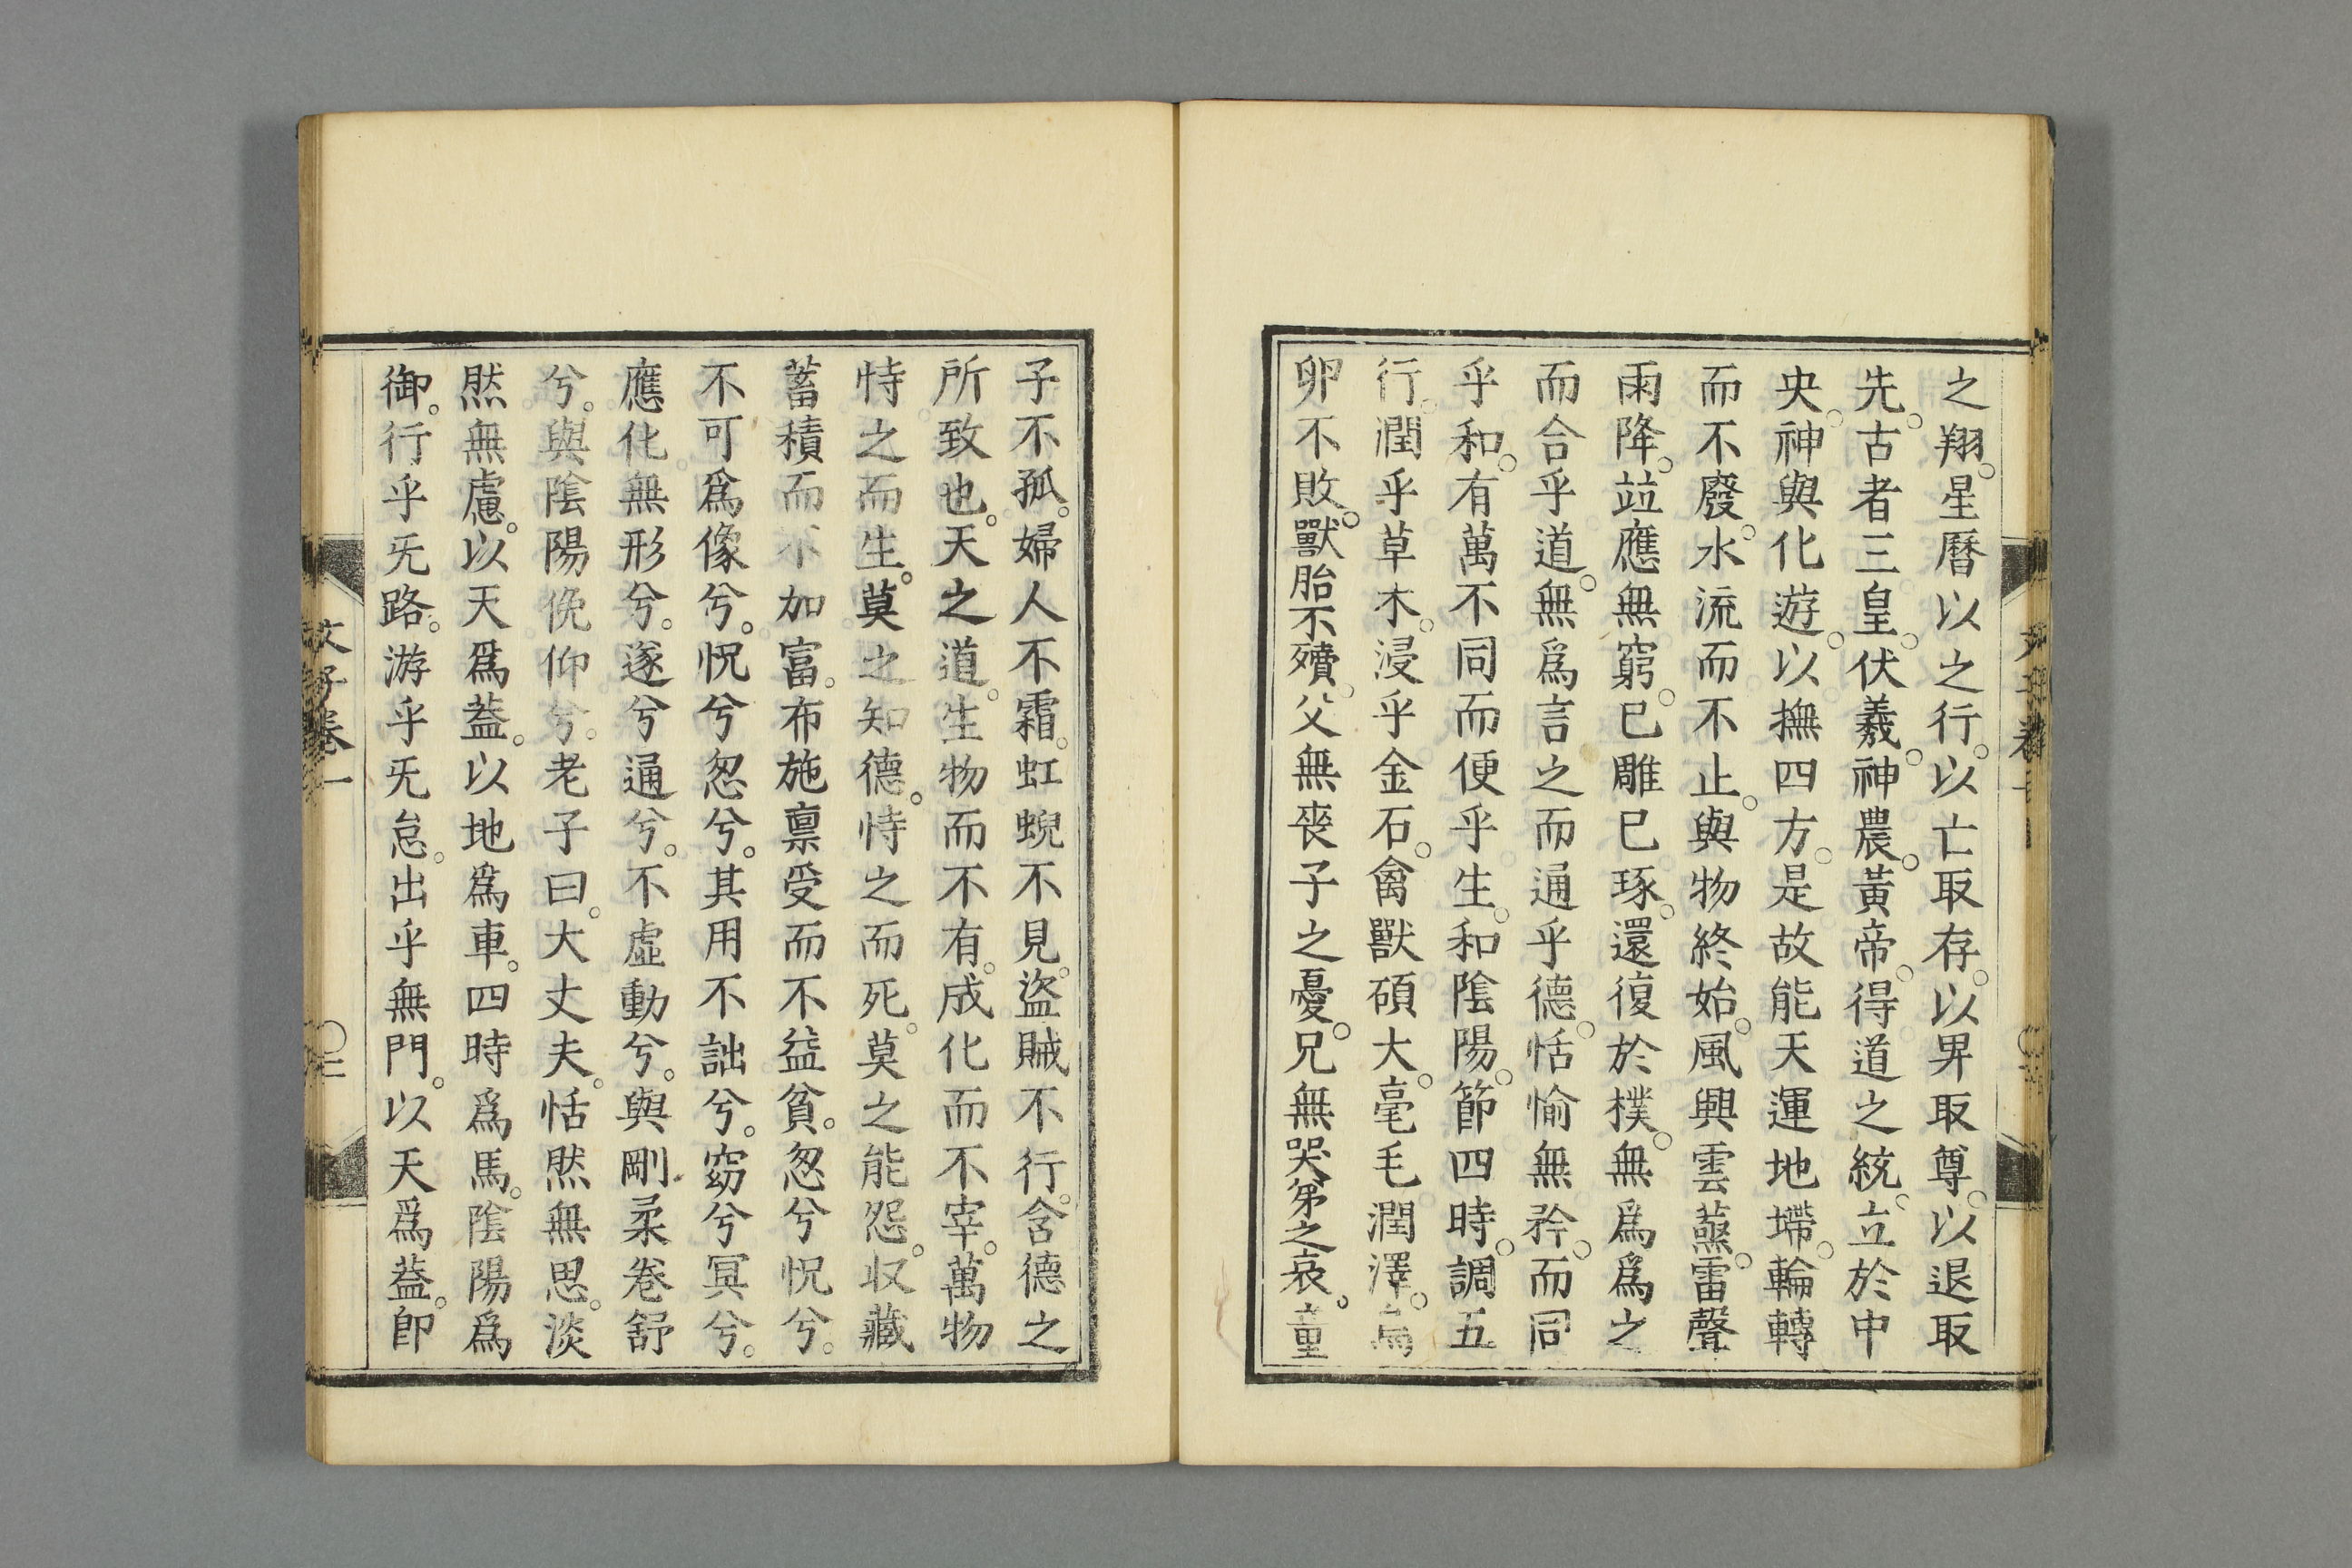 之翔。星曆以之行。以亡取存。以𢌿取尊。以退取
先。古者三皇。伏羲。神農。黃帝。得道之統。立於中
央。神與化遊。以撫四方。是故能天運地墆。輪轉
而不廢。水流而不止。與物終始。風興雲蒸。雷聲
雨降。竝應無窮。已雕已琢。還復於樸。無爲爲之
而合乎道。無爲言之而通乎德。恬愉無矜。而同
乎和。有萬不同而便乎生。和陰陽。節四時。調五
行。潤乎草木。浸乎金石。禽獸碩大。毫毛潤澤。鳥
卵不敗。獸胎不殰。父無喪子之憂。兄無哭弟之哀。童
子不孤。婦人不霜。虹蜺不見。盜賊不行。含德之
所致也。天之道。生物而不有。成化而不宰。萬物
恃之而生。莫之知德。恃之而死。莫之能怨。収藏
蓄積而不加富。布施禀受而不益貧。忽兮怳兮。
不可爲像兮。怳兮忽兮。其用不詘兮。窈兮冥兮。
應化無形兮。遂兮通兮。不虛動兮。與剛柔卷舒
兮。與陰陽俛仰兮。老子曰。大丈夫。恬然無思。淡
然無慮。以天爲蓋。以地爲車。四時爲馬。陰陽爲
御。行乎旡路。游乎旡怠。出乎無門。以天爲蓋。卽
文子卷一
〇二